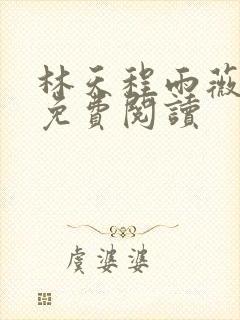 林天程雨薇
免費閱讀
虞婆婆